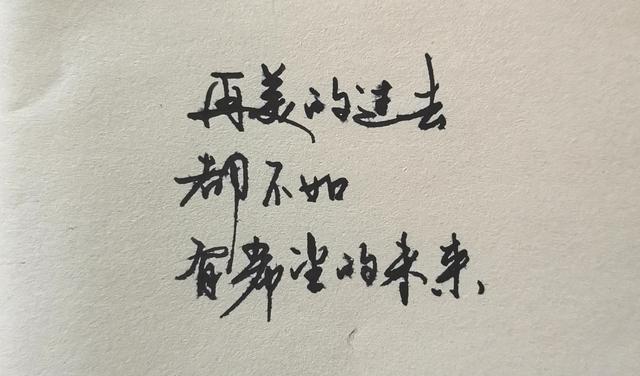 再美的过去
都不如
有希望的未来、